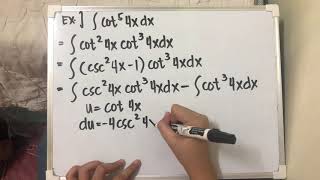 Ex.] ∫cot⁵4xdx
= ∫cot²4x cot³4xdx
= ∫(csc²4x-1) cot³4xdx
= ∫csc²4x cot³4xdx - ∫cot³4xdx
u = cot 4x
du = -4csc²4